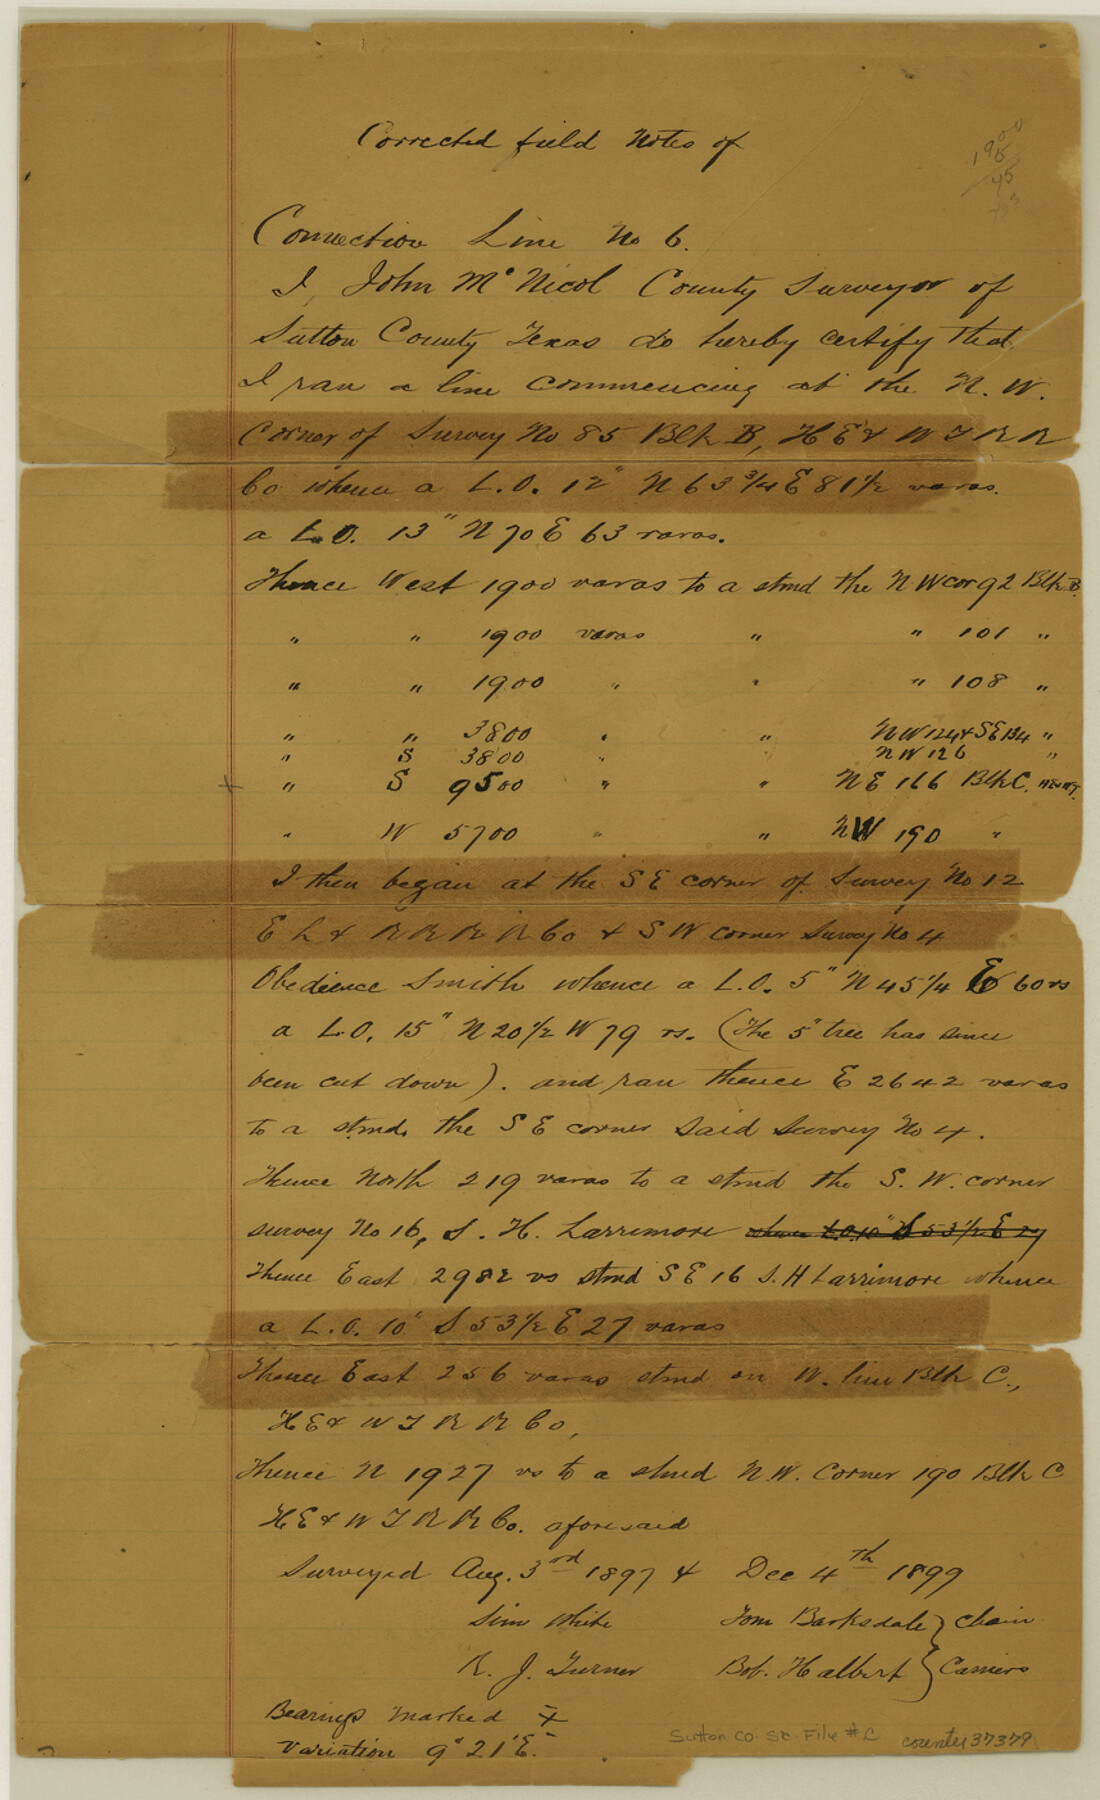 Corrected field Notes of
Connection Line No 6.
I, John McNicol County Surveyor of
Sutton County Texas do hereby certify that
I ran a line commencing at the N. W.
Corner of Survey No 85 Blk B, H E & W T R R
Co whence a L.O. 12" N 63 3/4 E 81 1/2 varas.
a L.O. 13" N 70 E 63 varas.
Thence West 1900 varas to a stmd the N W cor 92 Blk B.
" " 1900 varas " " 101 "
" " 1900 " " " 108 "
" " 3800 " " NW 124 & SE 134 "
" S 3800 " " NW 126 "
" S 9500 " " NE 166 Blk C. HE&WT.
" W 5700 " " NW 190 "
I then began at the S E corner of Survey No 12
E L & R R R R Co & S W corner Survey No 4
Obedience Smith whence a L.O. 5" N 45 1/4 E 60 vs
a L.O. 15" N 20 1/2 W 79 vs. (The 5" tree has since
been cut down). and ran thence E 2642 varas
to a stmd, the S E corner said Survey No 4.
Thence North 219 varas to a stmd the S. W. corner
survey No 16, S. H. Larrimore whence L.O. 10" S 53 1/2 E 27
Thence East 2982 vs stmd S E 16 S. H Larrimore whence
a L.O. 10" S 53 1/2 E 27 varas
Thence East 256 varas stmd on W. line Blk C.,
H E & W T R R Co,
Thence N 1927 vs to a stmd N.W. Corner 190 Blk C
H E & W T R R Co. aforesaid
Surveyed Aug. 3rd 1897 & Dec 4th 1899
Sim White Tom Barksdale } Chain
R. J. Turner Bob. Halbert } Carriers
Bearings marked X
Variation 9° 21' E.
Sutton Co. Sk. File #C counter 37379